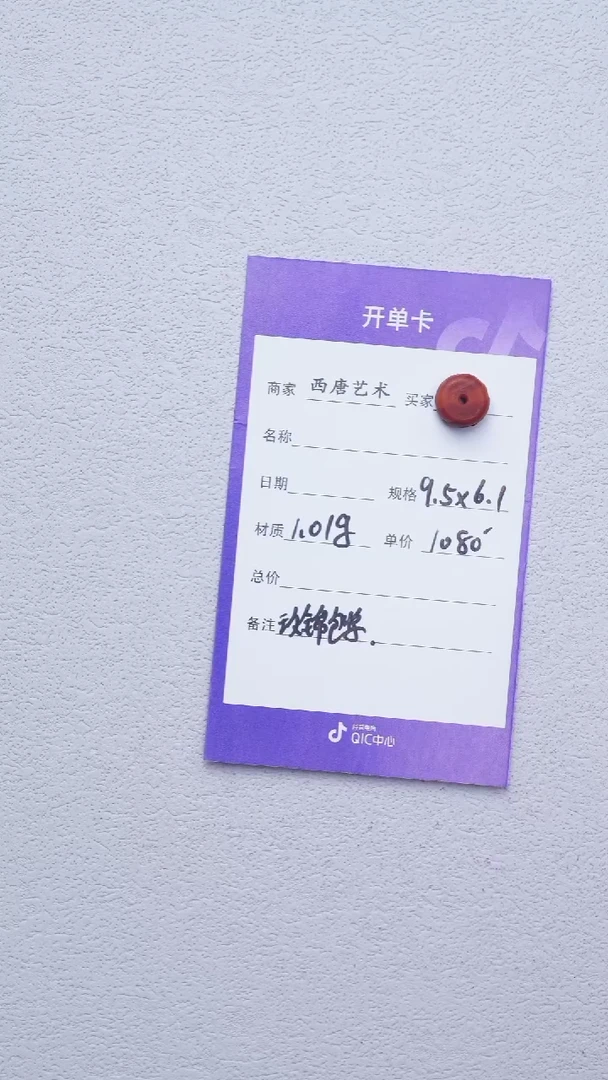 开单卡
商家 西唐艺术 买家
名称
日期 规格 9.5x6.1
材质 1.01g 单价 1080
总价
备注 锦包
QIC中心